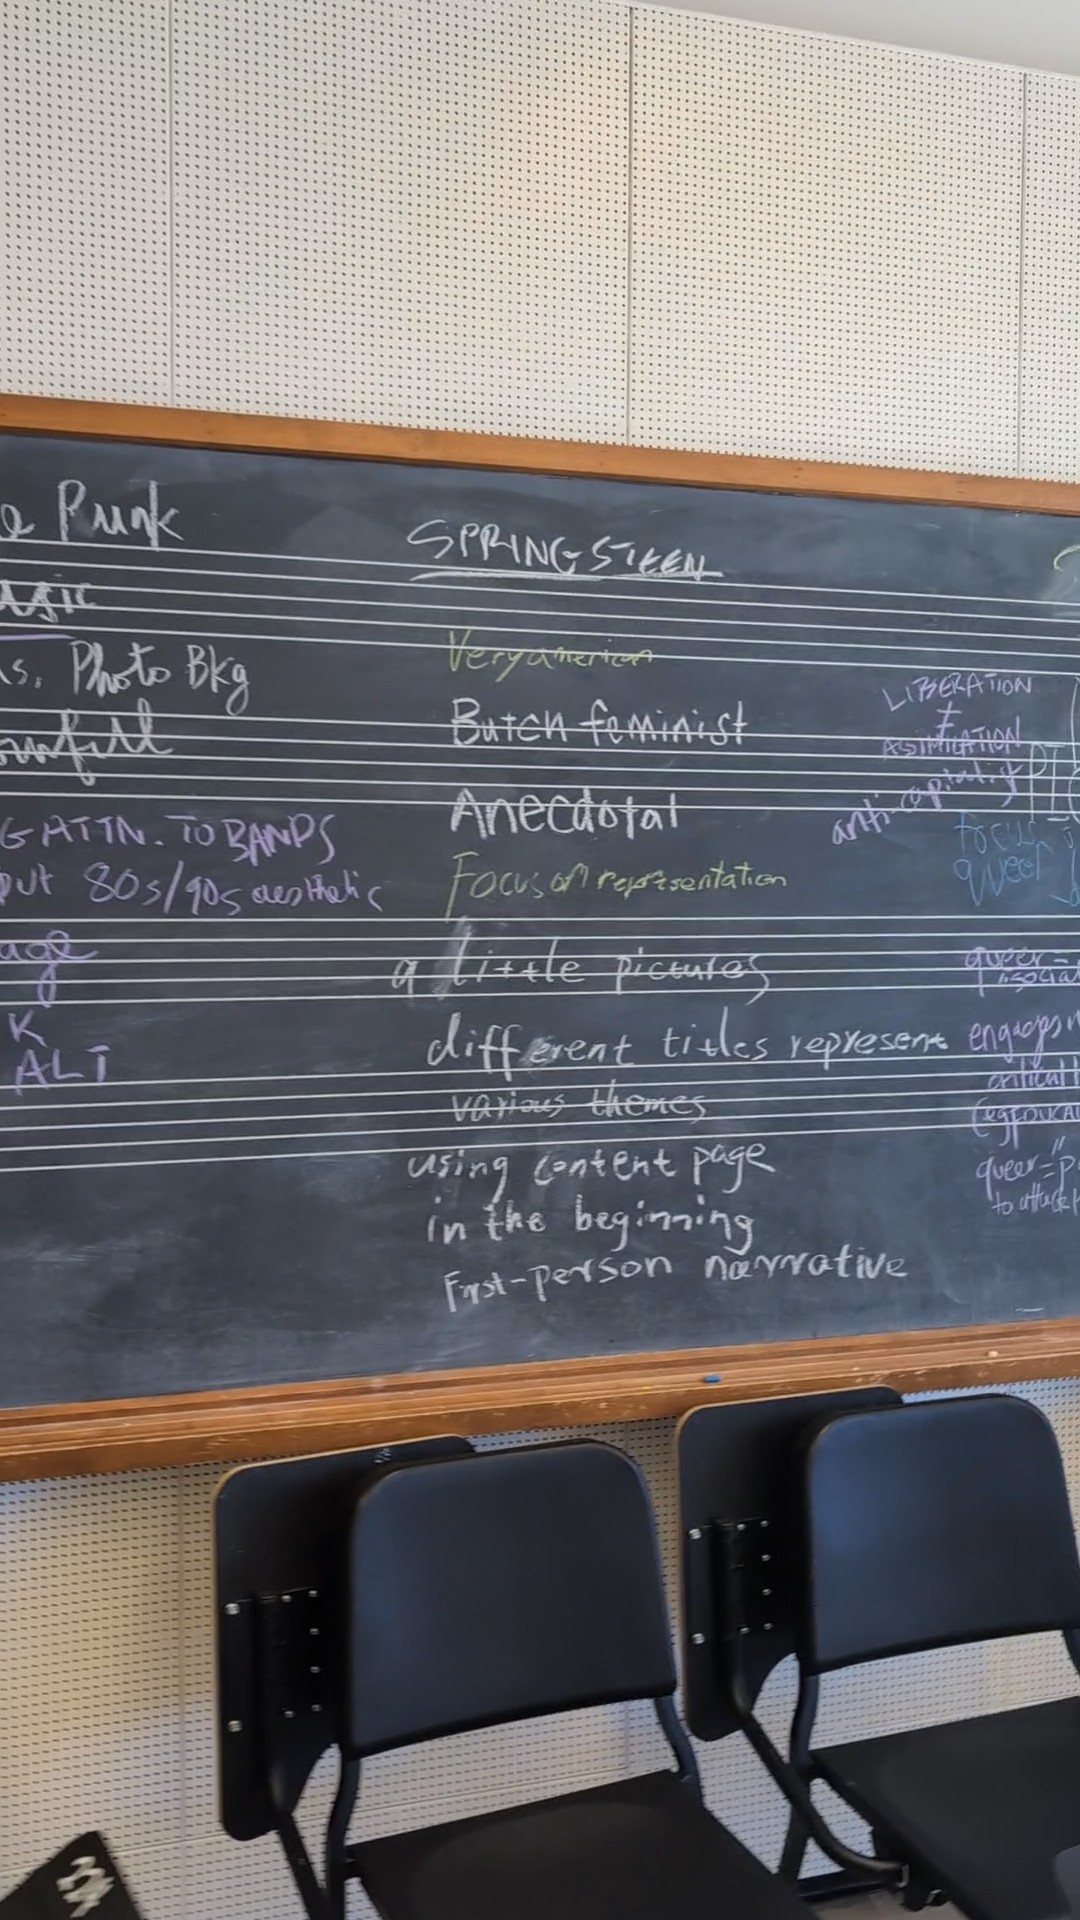 Punk
s. Photo Bkg
ATTN. TO BANDS
80s/90s aesthetic
age
K
ALT
SPRINGSTEEN
Very american
Butch feminist
Anecdotal
Focus on representation
a little pictures
different titles represent
various themes
using content page
in the beginning
First-person narrative
LIBERATION
≠
ASSIMILATION
anti-capitalist
focus
queer
queer =
engages
critical
queer =
to attack